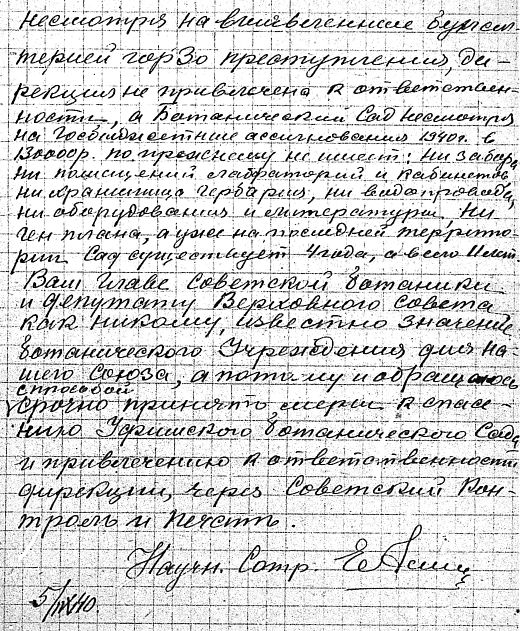 несмотря на выявленные бухгал-
терией горЗо преступления, ди-
рекция не привлечена к ответствен-
ности, а Ботанический Сад несмотря
на Госбюджетные ассигнования 1940г. в
130000р. по прежнему не имеет: ни забора,
ни помещений лабораторий и кабинетов
ни хранилища гербария, ни водопровода,
ни оборудования и литературы. Ни
ген плана, а уже на последней террито-
рии Сад существует 4 года, а всего 11 лет.
Вам Главе Советской ботаники
и депутату Верховного Совета
как никому, известно значение
ботанического Учреждения для на-
шего Союза, а потому и обращаюсь
с просьбой
срочно принять меры к спасе-
нию Уфимского ботанического Сада
и привлечению к ответственности
дирекции, через Советский Кон-
троль и печать.
Научн. Сотр.
5/IX 40.